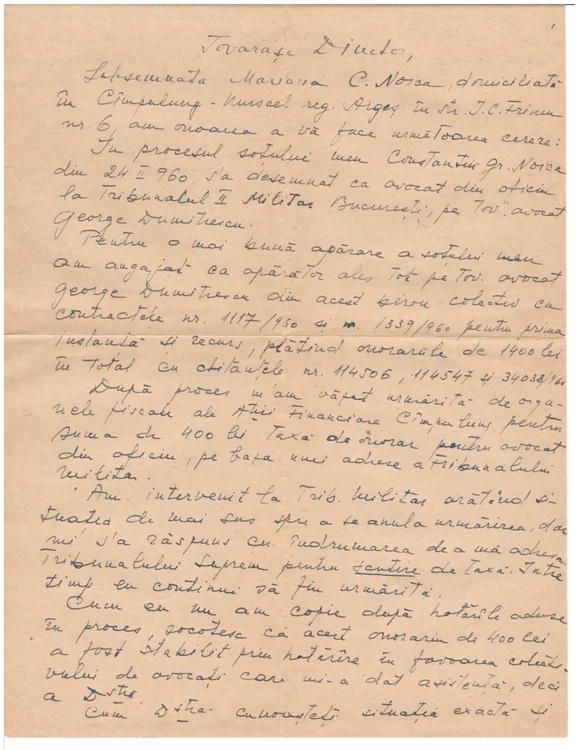 Tovarașe Director,
Subsemnata Mariana C. Noica, domiciliată
în Cîmpulung-Muscel reg. Argeș în str. I.C. Frimu
nr. 6, am onoarea a vă face următoarea cerere:
În procesul soțului meu Constantin Gr. Noica
din 24 II 960, s'a desemnat ca avocat din oficiu
la Tribunalul II Militar București, pe Tov. avocat
George Dumitrescu.
Pentru o mai bună apărare a soțului meu
am angajat ca apărător ales tot pe Tov. avocat
George Dumitrescu din acest birou colectiv cu
contractele nr. 1117/950 și 1339/960 pentru prima
instanță și recurs, plătind onorariile de 1400 lei
în total cu chitanțele nr. 114506, 114547 și 34038/960
După proces m'am văzut urmărită de orga-
nele fiscale ale Ației Financiare Cîmpulung pentru
suma de 400 lei taxă de onorar pentru avocat
din oficiu, pe baza unei adrese a Tribunalului
Militar.
Am intervenit la Trib. Militar arătând si-
tuația de mai sus spre a se anula urmărirea, dar
mi s'a răspuns cu îndrumarea de a mă adresa
Tribunalului Suprem pentru scutire de taxă. Între
timp eu continui să fiu urmărită.
Cum eu nu am copie după hotărîle aduse
în proces, socotesc că acest onorariu de 400 lei
a fost stabilit prin hotărîre în favoarea colecti-
vului de avocați care mi-a dat asistență, deci
a Dstră.
Cum Dstră cunoașteți situația exactă și